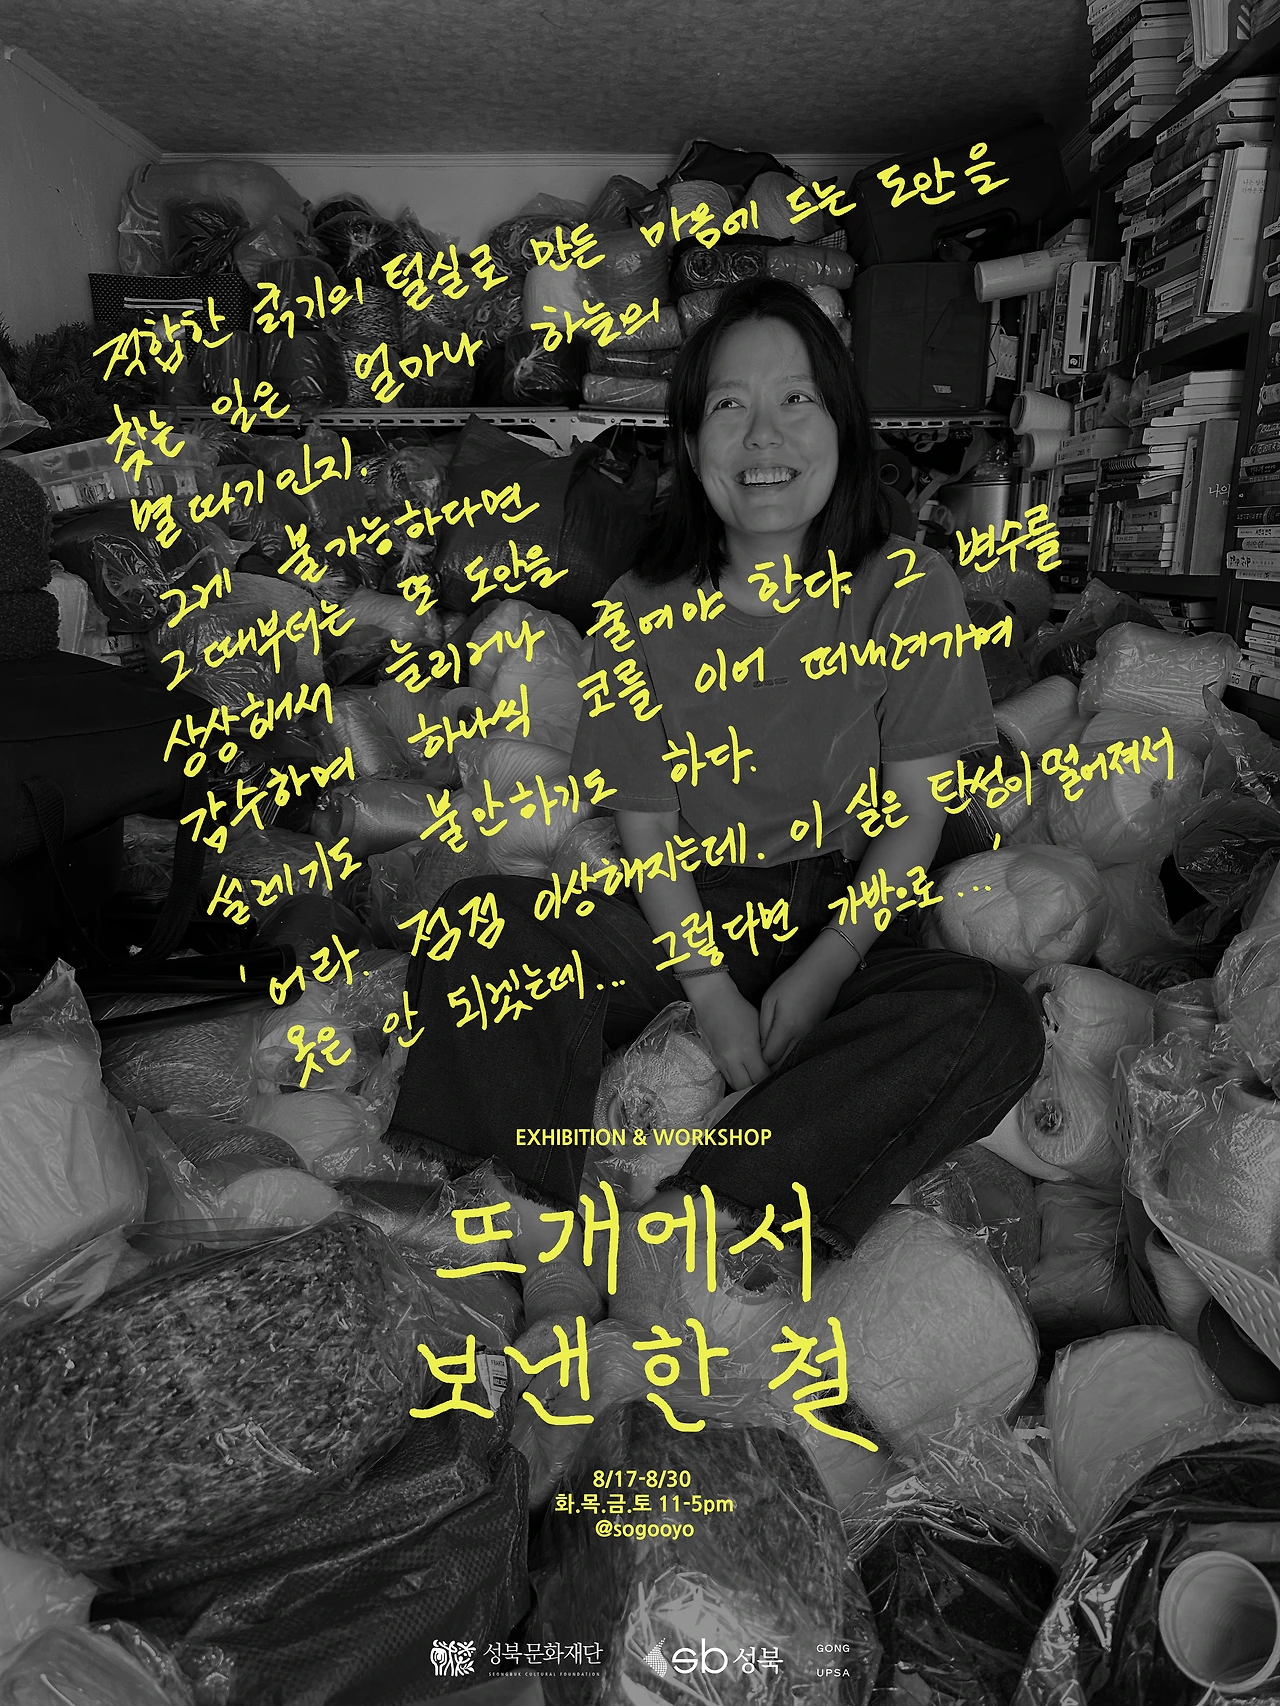 적합한 굵기의 털실로 만든 마음에 드는 도안을
찾는 일은 얼마나 하늘의
별 따기인지.
그게 불가능하다면
그때부터는 또 도안을
늘리거나 줄여야 한다. 그 변수를
상상해서 하나씩 코를 이어 떠내려가며
감수하며 불안하기도 하다.
설레기도
'어라. 점점 이상해지는데. 이 실은 탄성이 떨어져서
옷은 안 되겠는데... 그렇다면 가방으로....'
EXHIBITION & WORKSHOP
뜨개에서
보낸 한 철
8/17-8/30
화.목.금.토 11-5pm
@sogooyo
성북문화재단
SEONGBUK CULTURAL FOUNDATION
sb 성북
GONG
UPSA